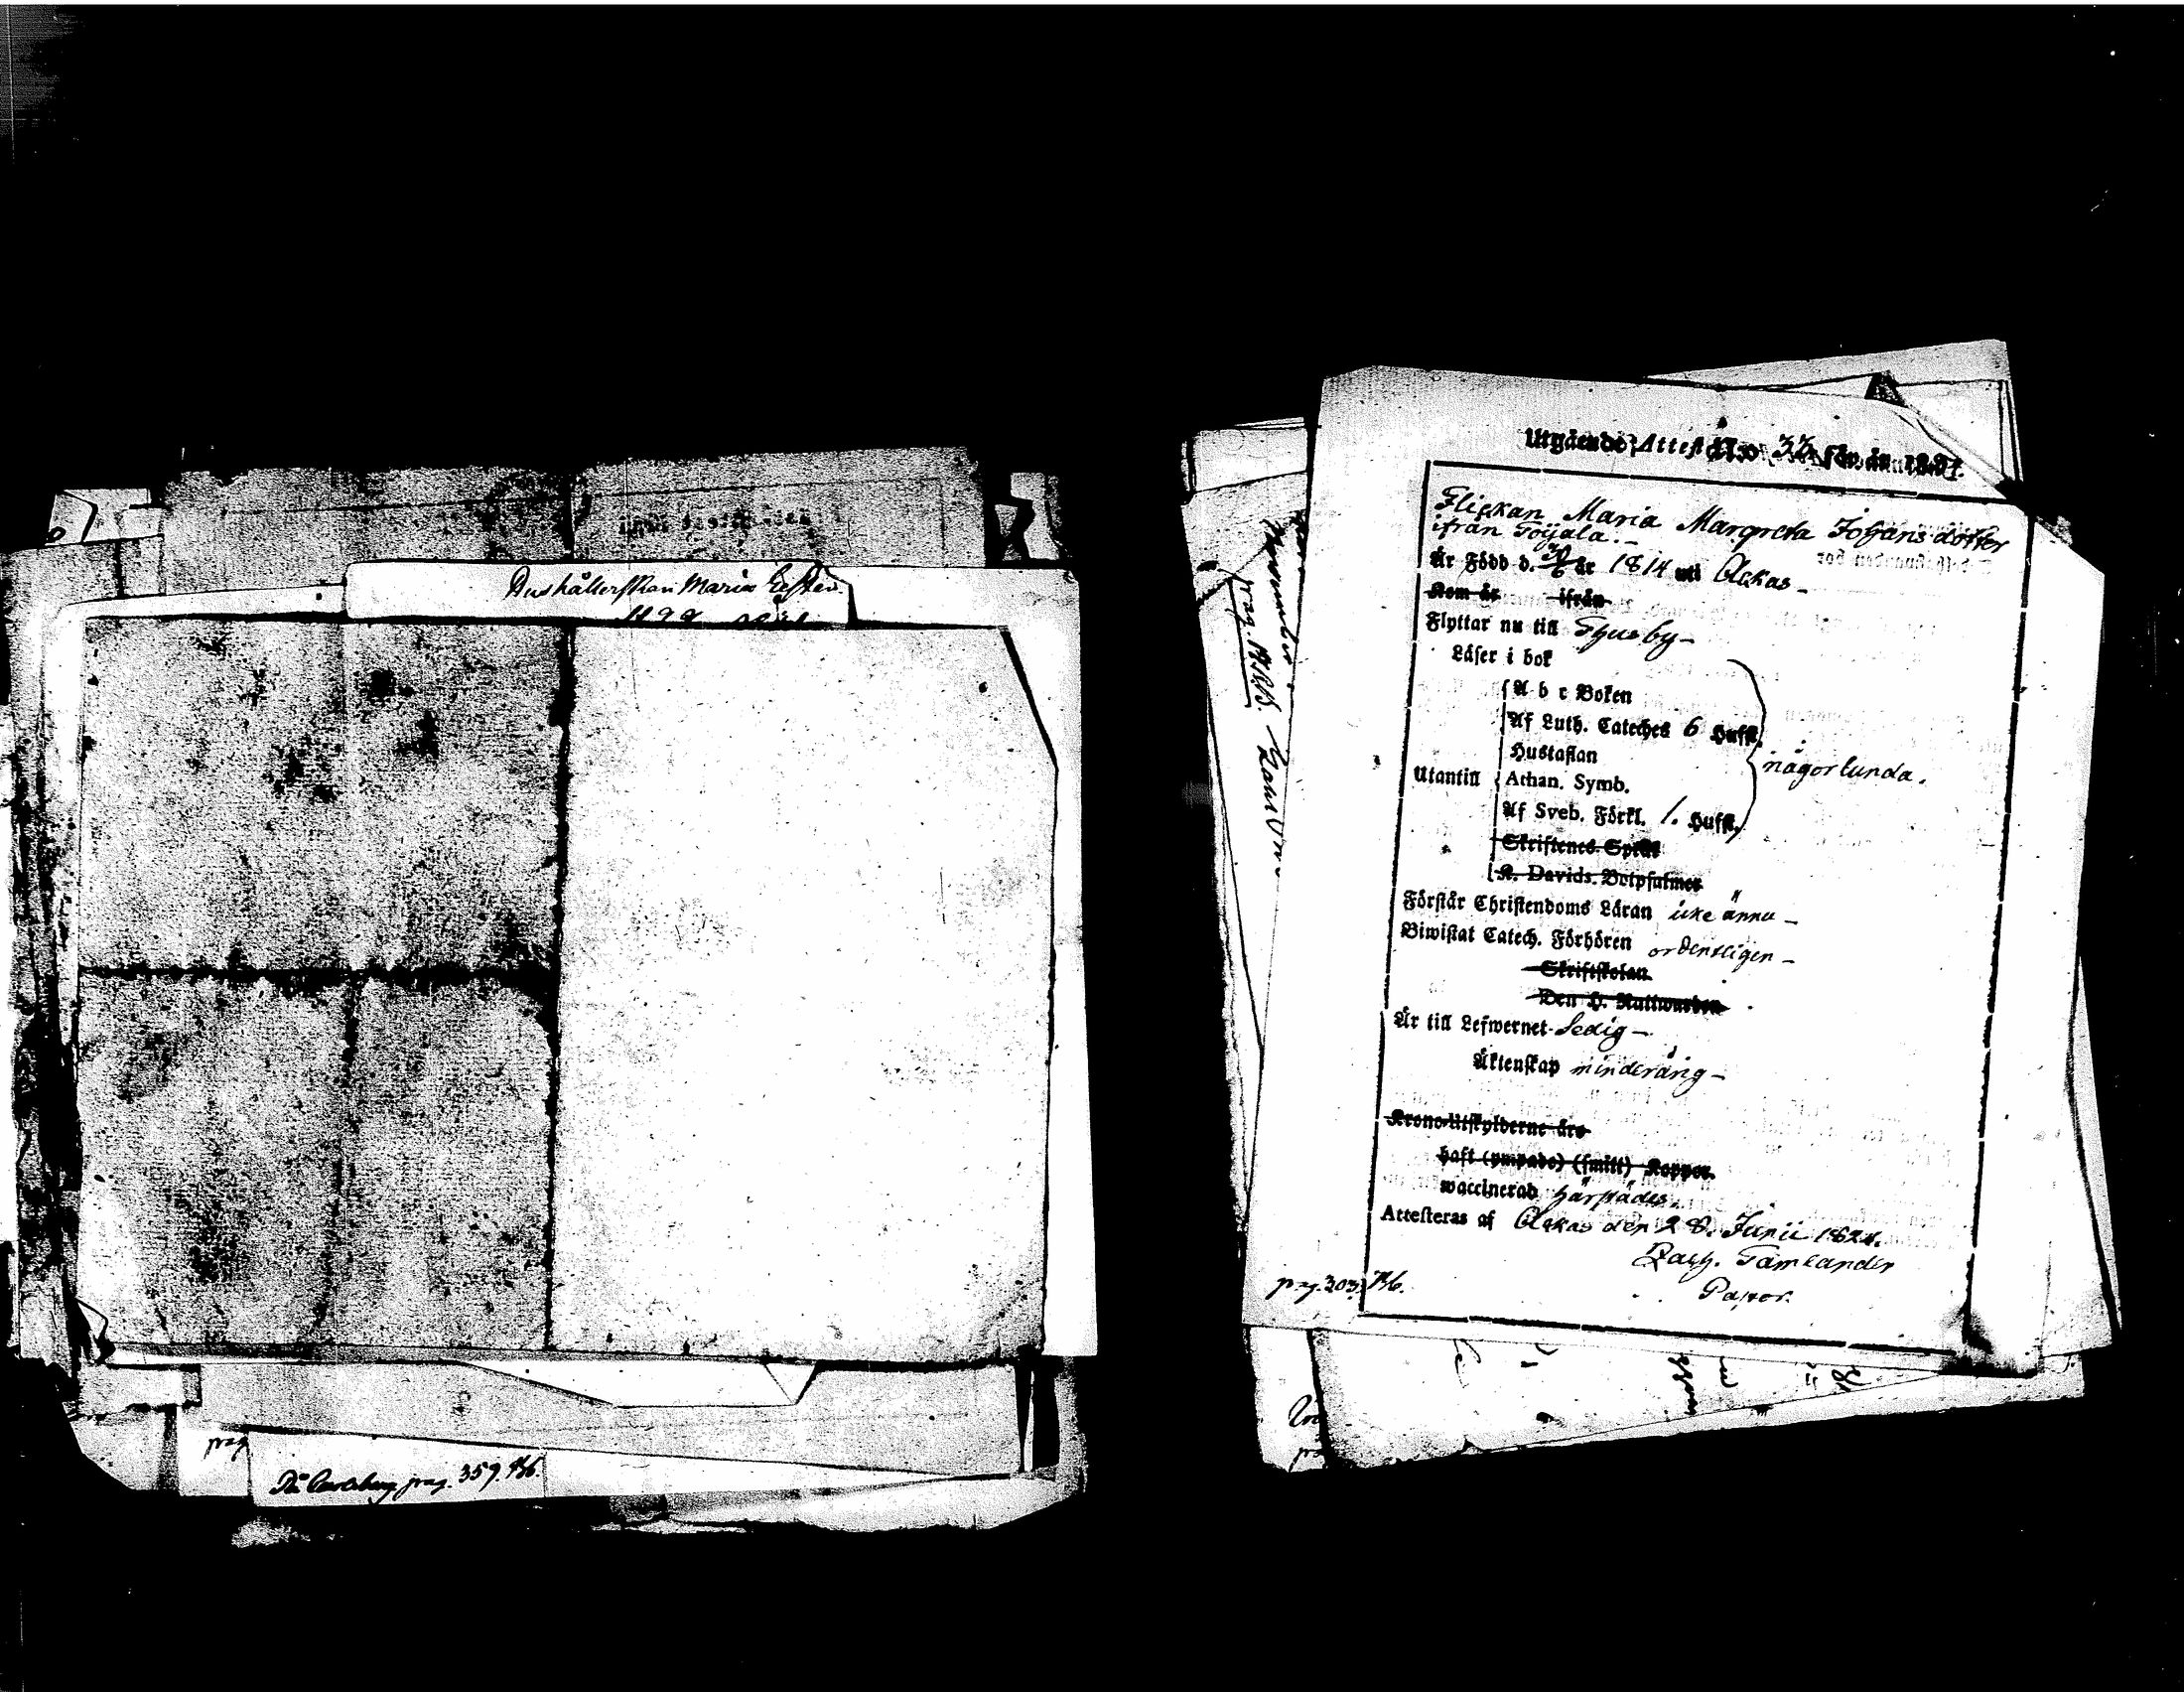 Hushållerskan Maria
pag. 359. 
pag
Utgående Attest No 33 för år 1824.
Flickan Maria Margreta Johansdotter
ifrån Toijala. –
Är Född d. 30/6 år 1814 uti Ackas –
Kom år ifrån
Flyttar nu till Thusby –
Läser i bok
A b c Boken
Af Luth. Cateches 6 Hufst.
Hustaflan
någorlunda.
Utantill Athan. Symb.
Af Sveb. Förkl. 1. Hufst.
Skriftenes Språk
K. Davids Botpsalmer
Förstår Christendoms Läran icke ännu –
Biwistat Catech. Förhören ordentligen –
Skriftskolan
Den H. Nattwarden
Är till Lefwernet Ledig –
Äktenskap minderårig –
Krono-Utskylderne års
haft (ympade) (smitt) Koppor.
waccinerad härstädes.
Attesteras af Ackas den 28. Junii 1824.
Zach. Tamlander
Pastor.
pag. 303.